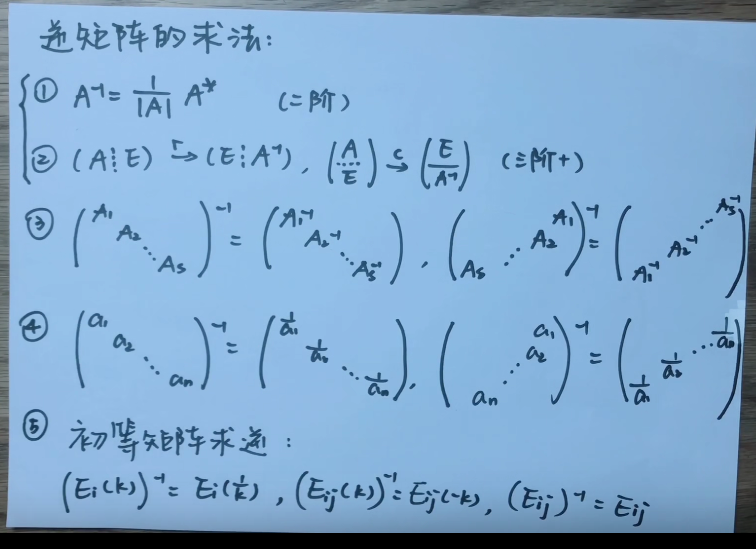 逆矩阵的求法:
① A⁻¹ = 1/|A| A* (二阶)
② (A⋮E) →r (E⋮A⁻¹), (A/E) →c (E/A⁻¹) (三阶+)
③ (A₁ A₂ ⋱ As)⁻¹ = (A₁⁻¹ A₂⁻¹ ⋱ As⁻¹), (A₁ A₂ ⋰ As)⁻¹ = (As⁻¹ ⋰ A₂⁻¹ A₁⁻¹)
④ (a₁ a₂ ⋱ an)⁻¹ = (1/a₁ 1/a₂ ⋱ 1/an), (a₁ a₂ ⋰ an)⁻¹ = (1/an ⋰ 1/a₂ 1/a₁)
⑤ 初等矩阵求逆:
(Ei(k))⁻¹ = Ei(1/k), (Eij(k))⁻¹ = Eij(-k), (Eij)⁻¹ = Eij